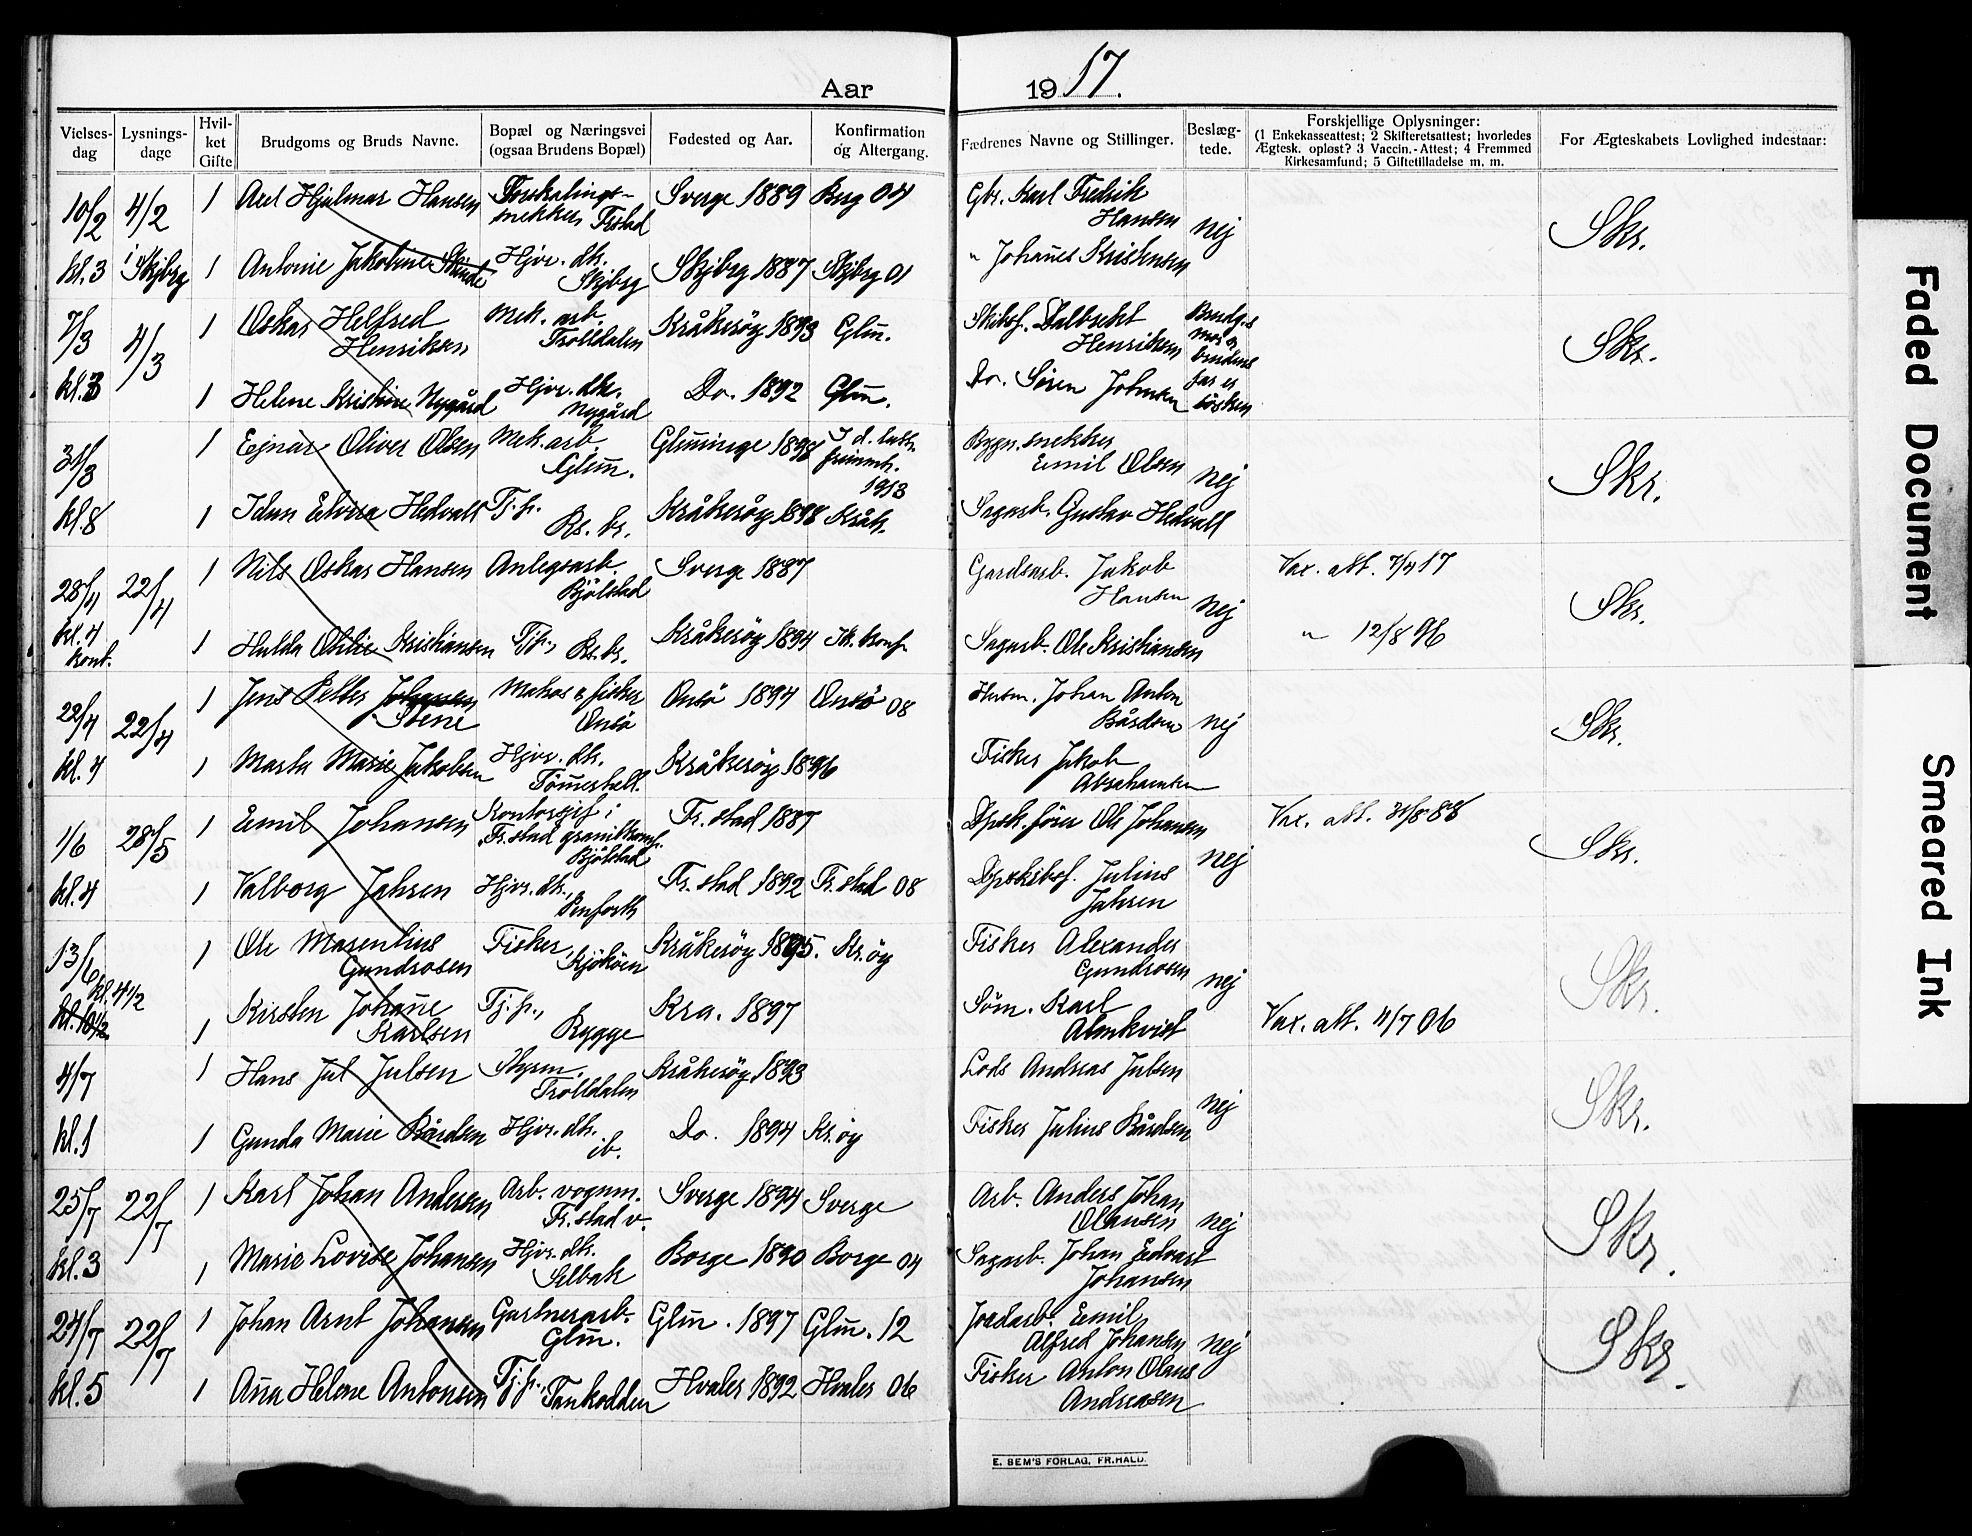 Aar 1917.
Vielses-dag
Lysnings-dage
Hvil-ket Gifte
Brudgoms og Bruds Navne.
Bopæl og Næringsvei (ogsaa Brudens Bopæl)
Fødested og Aar.
Konfirmation og Altergang.
Fædrenes Navne og Stillinger.
Beslæg-tede.
Forskjellige Oplysninger:
(1 Enkekasseattest; 2 Skifteretsattest; hvorledes
Ægtesk. opløst? 3 Vaccin.-Attest; 4 Fremmed
Kirkesamfund; 5 Giftetilladelse m. m.
For Ægteskabets Lovlighed indestaar:
10/2 4/2 1 Axel Hjalmar Hansen Forskalings-snekker Frstad Sverge 1889 Berg 04 Gbr. Karl Fredrik Hansen nej Skr.
kl. 3 i Skjbrg 1 Antonie Jakobine Hjvr. dk. Skjbrg Skjbrg 1887 Skjbrg 01 " Johanes Kristensen
7/3 4/3 1 Oskar Helfred Henriksen Mek. arb. Trolldalen Kråkerøy 1893 Glm. Skibsf. Henriksen Brudg.s mor og brudens far er søsken Skr.
kl. 3 1 Helene Kristine Nygård Hjvr. dk. Nygård Do. 1892 Glm. Do. Søren Johnsen
31/3 1 Ejnar Oliver Olsen Mek. arb. Glm. Glemminge 1894 I d. luth. frimenh. 1913 Bygn. snekker Emil Olsen nej Skr.
kl. 8 1 Idun Elvira Hedvall Tj.p. Rs. br. Kråkerøy 1898 Kråk. Sagarb. Gustav Hedvall
28/4 22/4 1 Nils Oskar Hansen Anlegsarb. Bjölstad Sverge 1887 Gardsarb. Jakob Hansen nej Vax. att. 7/4 17 Skr.
kl. 4 kont. 1 Hulda Othilie Kristiansen Tj.p., Rs. br. Kråkerøy 1894 Ik. konf. Sagarb. Ole Kristiansen " 12/8 96
22/4 22/4 1 Jens Petter Johansen Stene Matros & fisker Onsö Onsö 1894 Onsö 08 Husm. Johan Anton Bårdsen nej Skr.
kl. 4 1 Marta Marie Jakobsen Hjvr. dk. Kråkerøy 1896 Fisker Jakob Abrahamsen
1/6 28/5 1 Emil Johansen Kontorsjef i Fr.stad granitkomp. Bjölstad Fr. stad 1887 Dpsk. förer Ole Johansen nej Vax. att. 31/8 88 Skr.
kl. 4 1 Valborg Jahren Hjvr. dk., Fr. stad 1892 Fr. stad 08 Dpskibsf. Julius Jahren
13/6 kl. 4 1/2 1 Ole Masentius Gundrosen Fisker, Kjököen Kråkerøy 1895. Kr.øy Fisker Alexander Gundrosen nej Skr.
kl. 10 1/2 1 Kirsten Johane Karlsen Tj.p., Rygge Kra. 1897 Søm. Karl Almkvist Vax. att. 4/7 06
4/7 1 Hans Jul Julsen Styrm. Trolldalen Kråkerøy 1893 Lods Andreas Julsen nej Skr.
kl. 1 1 Gunda Marie Bårdsen Hjvr. dk. ib. Do. 1894 Kr. øy Fisker Julius Bårdsen
25/7 22/7 1 Karl Johan Andersen Arb. vognm. Fr. stad v. Sverge 1894 Sverge Arb. Anders Johan Olausen nej Skr.
kl. 3 1 Marie Lovise Johansen Hjvr. dk. Selbak Borge 1890 Borge 04 Sagarb. Johan Edvart Johansen
24/7 22/7 1 Johan Arnt Johansen Gartnerarb. Glm. Glm. 1897 Glm. 12 Jordarb. Emil Alfred Johansen nej Skr.
kl. 5 1 Ana Helene Antonsen Tj.p., Tankodden Hvaler 1892 Hvaler 06 Fisker Anton Olaus Andreasen
E. SEM'S FORLAG, FR.HALD.
Faded Document
Smeared Ink